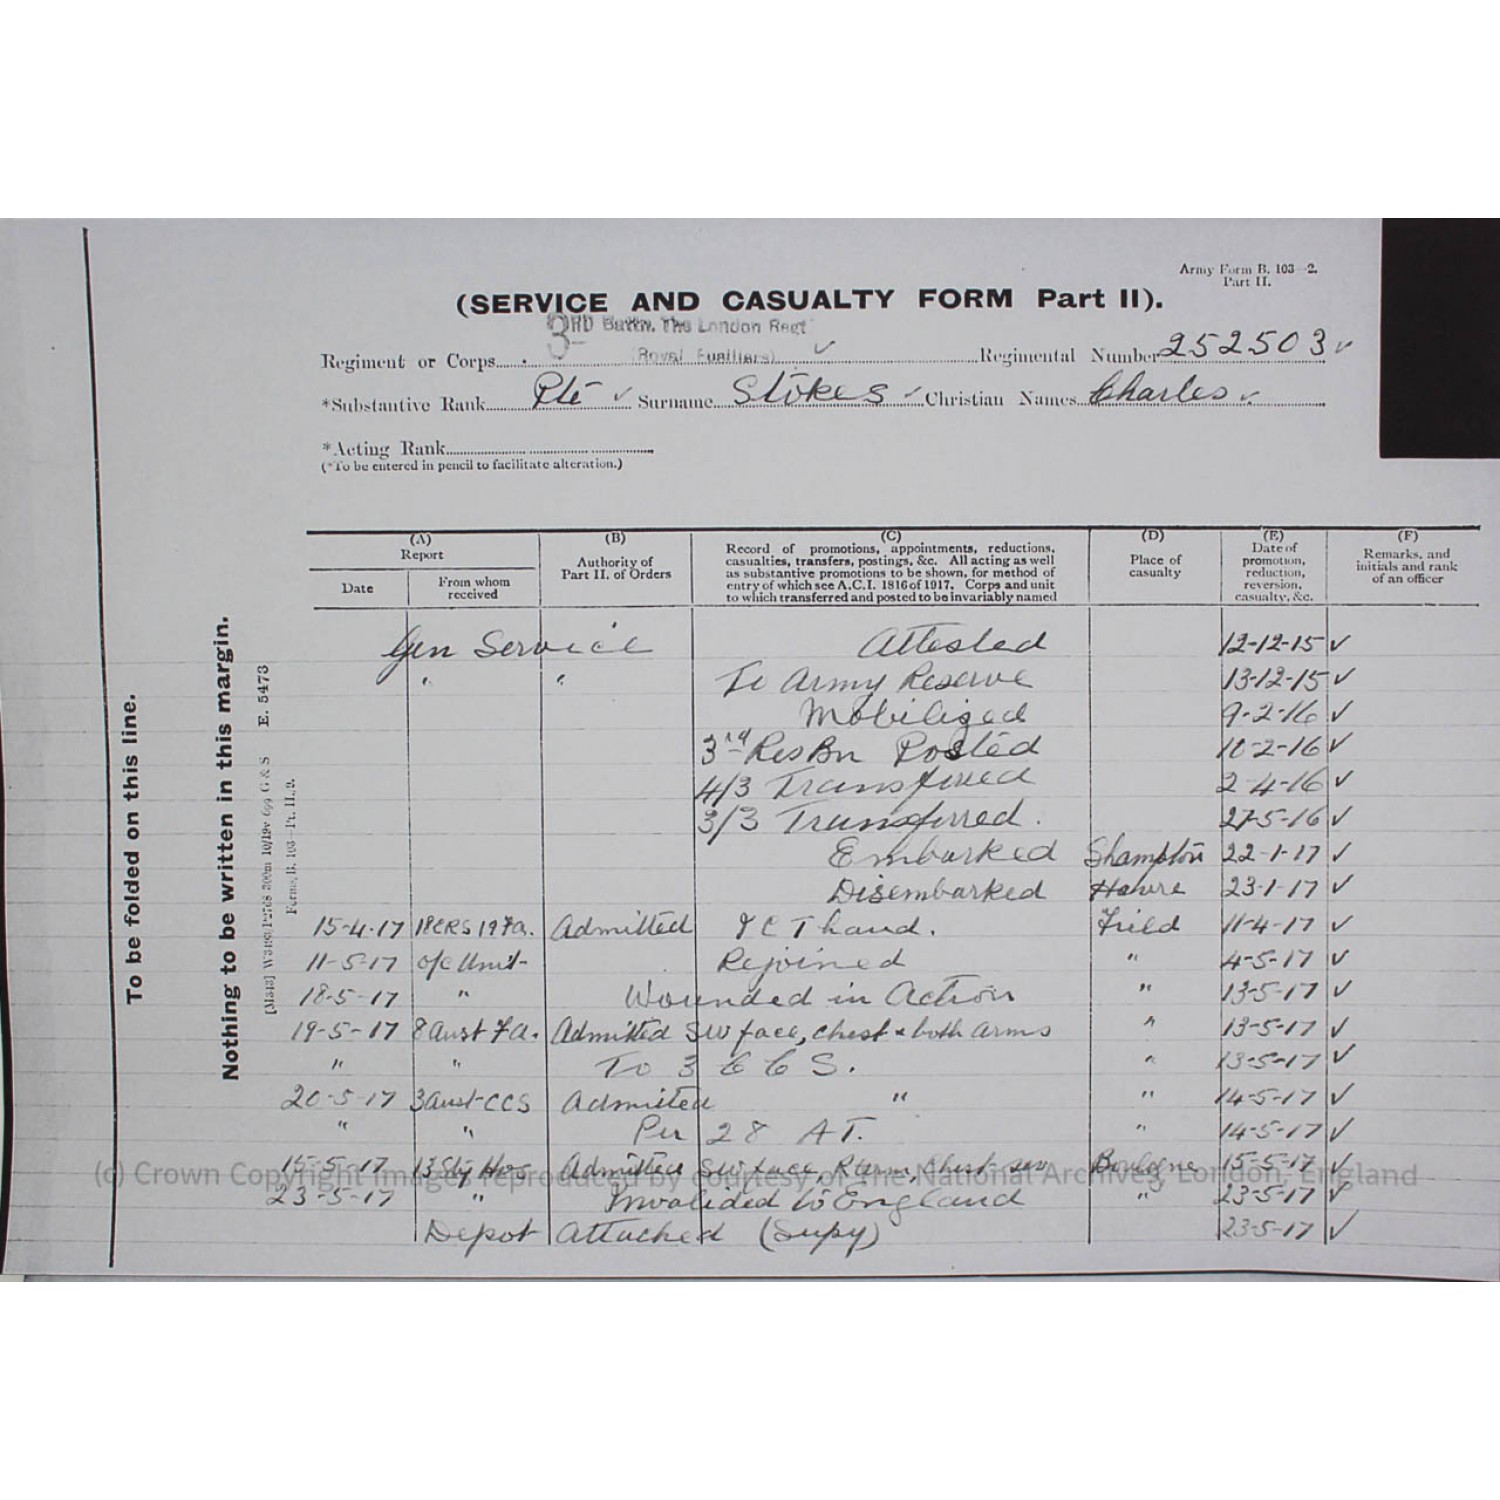 Army Form B. 103—2.
Part II.
(SERVICE AND CASUALTY FORM Part II).
3RD Battn. The London Regt
(Royal Fusiliers)
Regiment or Corps Regimental Number 252503
*Substantive Rank Pte Surname Stokes Christian Names Charles
*Acting Rank
(*To be entered in pencil to facilitate alteration.)
To be folded on this line.
Nothing to be written in this margin.
E. 5473
Forms/B. 103—Pt. II./2.
(A) Report
Date
From whom received
(B)
Authority of Part II. of Orders
(C)
Record of promotions, appointments, reductions,
casualties, transfers, postings, &c. All acting as well
as substantive promotions to be shown, for method of
entry of which see A.C.I. 1816 of 1917. Corps and unit
to which transferred and posted to be invariably named
(D)
Place of casualty
(E)
Date of promotion, reduction, reversion, casualty, &c.
(F)
Remarks, and initials and rank of an officer
Gen Service Attested 12-12-15 ✓
" " To Army Reserve 13-12-15 ✓
Mobilized 9-2-16 ✓
3rd Res Bn Posted 10-2-16 ✓
4/3 Transfered 2-4-16 ✓
3/3 Transferred. 27-5-16 ✓
Embarked Shampton 22-1-17 ✓
Disembarked Havre 23-1-17 ✓
15-4-17 18CRS 19 Fa. Admitted I C T hand. Field 11-4-17 ✓
11-5-17 o/c Unit- Rejoined " 4-5-17 ✓
18-5-17 " Wounded in Action " 13-5-17 ✓
19-5-17 8 Aust Fa. Admitted SW face, chest & both arms " 13-5-17 ✓
" " To 3 C C S. " 13-5-17 ✓
20-5-17 3 Aust-CCS Admitted " " 14-5-17 ✓
" " Per 28 A T. " 14-5-17 ✓
15-5-17 13 Sty Hos Admitted SW face, R arm, Chest Boulogne 15-5-17 ✓
23-5-17 " Invalided to England " 23-5-17 ✓
Depot Attached (Supy) 23-5-17 ✓
(c) Crown Copyright Images reproduced by courtesy of The National Archives, London, England